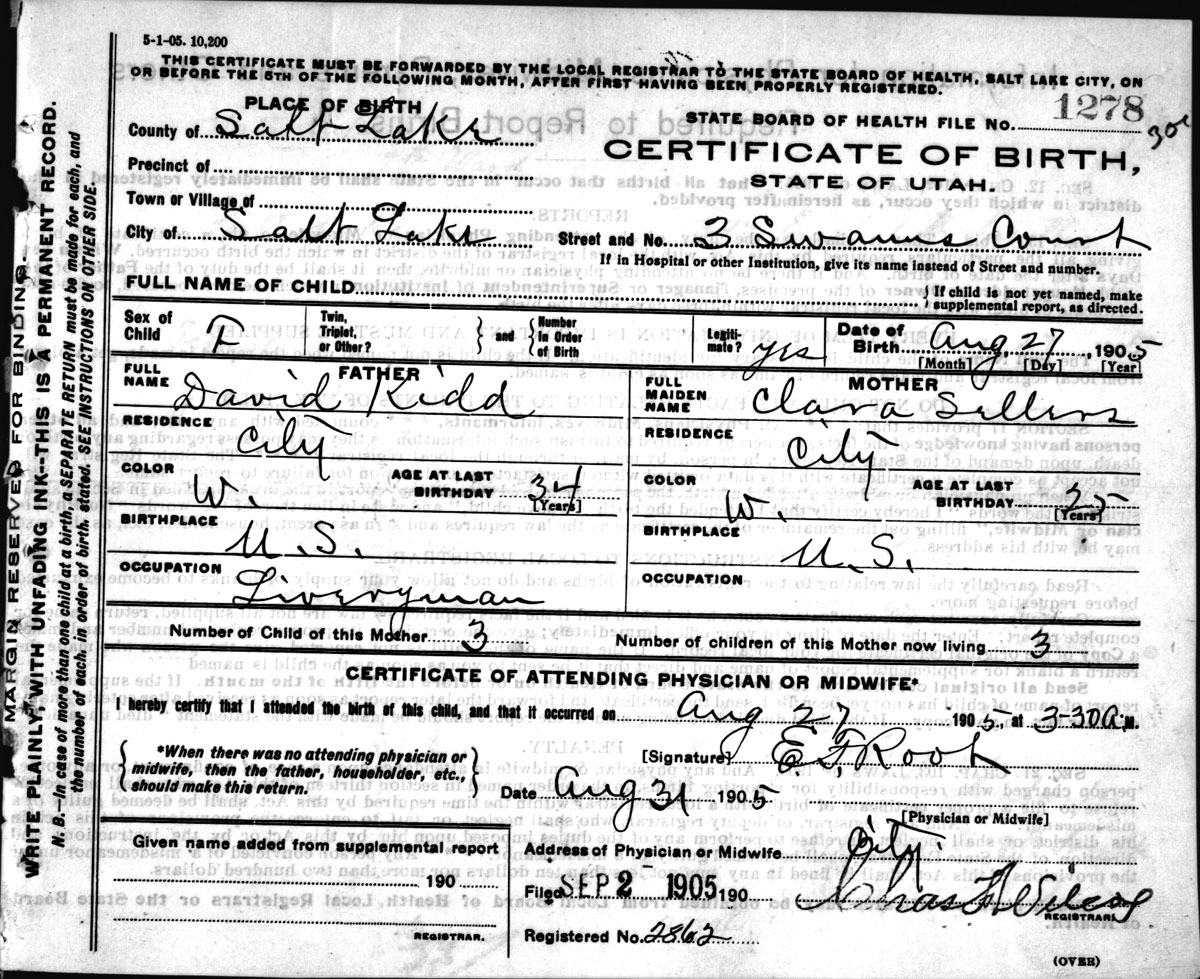 5-1-05. 10,200
THIS CERTIFICATE MUST BE FORWARDED BY THE LOCAL REGISTRAR TO THE STATE BOARD OF HEALTH, SALT LAKE CITY, ON
OR BEFORE THE 5TH OF THE FOLLOWING MONTH, AFTER FIRST HAVING BEEN PROPERLY REGISTERED.
PLACE OF BIRTH
STATE BOARD OF HEALTH FILE NO. 1278
County of Salt Lake
CERTIFICATE OF BIRTH,
Precinct of
STATE OF UTAH.
Town or Village of
City of Salt Lake Street and No. 3 Swanns Court
If in Hospital or other Institution, give its name instead of Street and number.
FULL NAME OF CHILD } If child is not yet named, make supplemental report, as directed.
Sex of Child F Twin, Triplet, or Other? } and { Number in Order of Birth Legiti-mate? yes Date of Birth Aug, 27, 1905
[Month] [Day] [Year]
FATHER
FULL NAME David Kidd
RESIDENCE City
COLOR W. AGE AT LAST BIRTHDAY 34
[Years]
BIRTHPLACE U.S.
OCCUPATION Liveryman
MOTHER
FULL MAIDEN NAME Clara Sellers
RESIDENCE City
COLOR W. AGE AT LAST BIRTHDAY 25
[Years]
BIRTHPLACE U.S.
OCCUPATION
Number of Child of this Mother 3 Number of children of this Mother now living 3
CERTIFICATE OF ATTENDING PHYSICIAN OR MIDWIFE*
I hereby certify that I attended the birth of this child, and that it occurred on Aug 27 1905, at 3-30 A.M.
{ *When there was no attending physician or midwife, then the father, householder, etc., should make this return. }
[Signature] E. F. Root
Date Aug 31 1905
[Physician or Midwife]
Given name added from supplemental report
190
REGISTRAR.
Address of Physician or Midwife City
Filed SEP 2 1905 190 Chas H Wilcox
REGISTRAR.
Registered No. 2862
(OVER)
MARGIN RESERVED FOR BINDING
WRITE PLAINLY WITH UNFADING INK--THIS IS A PERMANENT RECORD.
N. B.--In case of more than one child at a birth, a SEPARATE RETURN must be made for each, and
the number of each, in order of birth, stated. SEE INSTRUCTIONS ON OTHER SIDE.